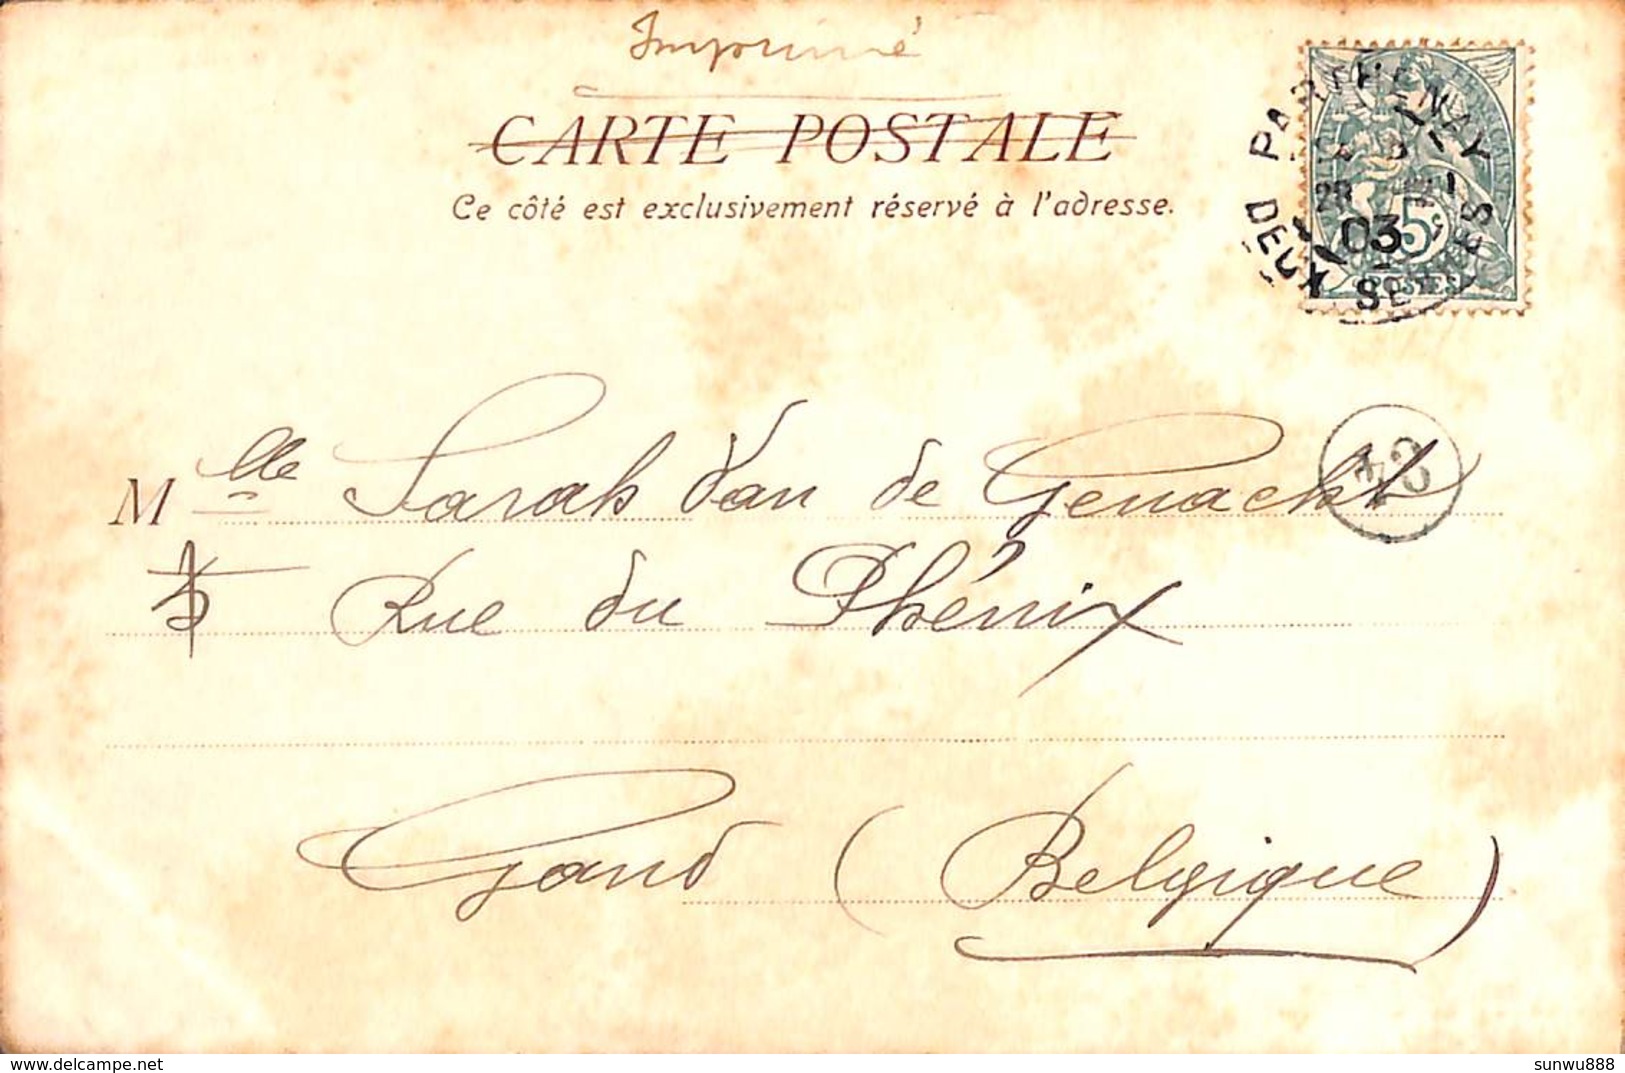 Imprimé
CARTE POSTALE
Ce côté est exclusivement réservé à l'adresse.
PARTHENAY
28
03
DEUX SEVRES
5c
POSTES
Mlle Sarah Van de Genachte
5 Rue du Phénix
Gand (Belgique)
delcampe.net
sunwu888